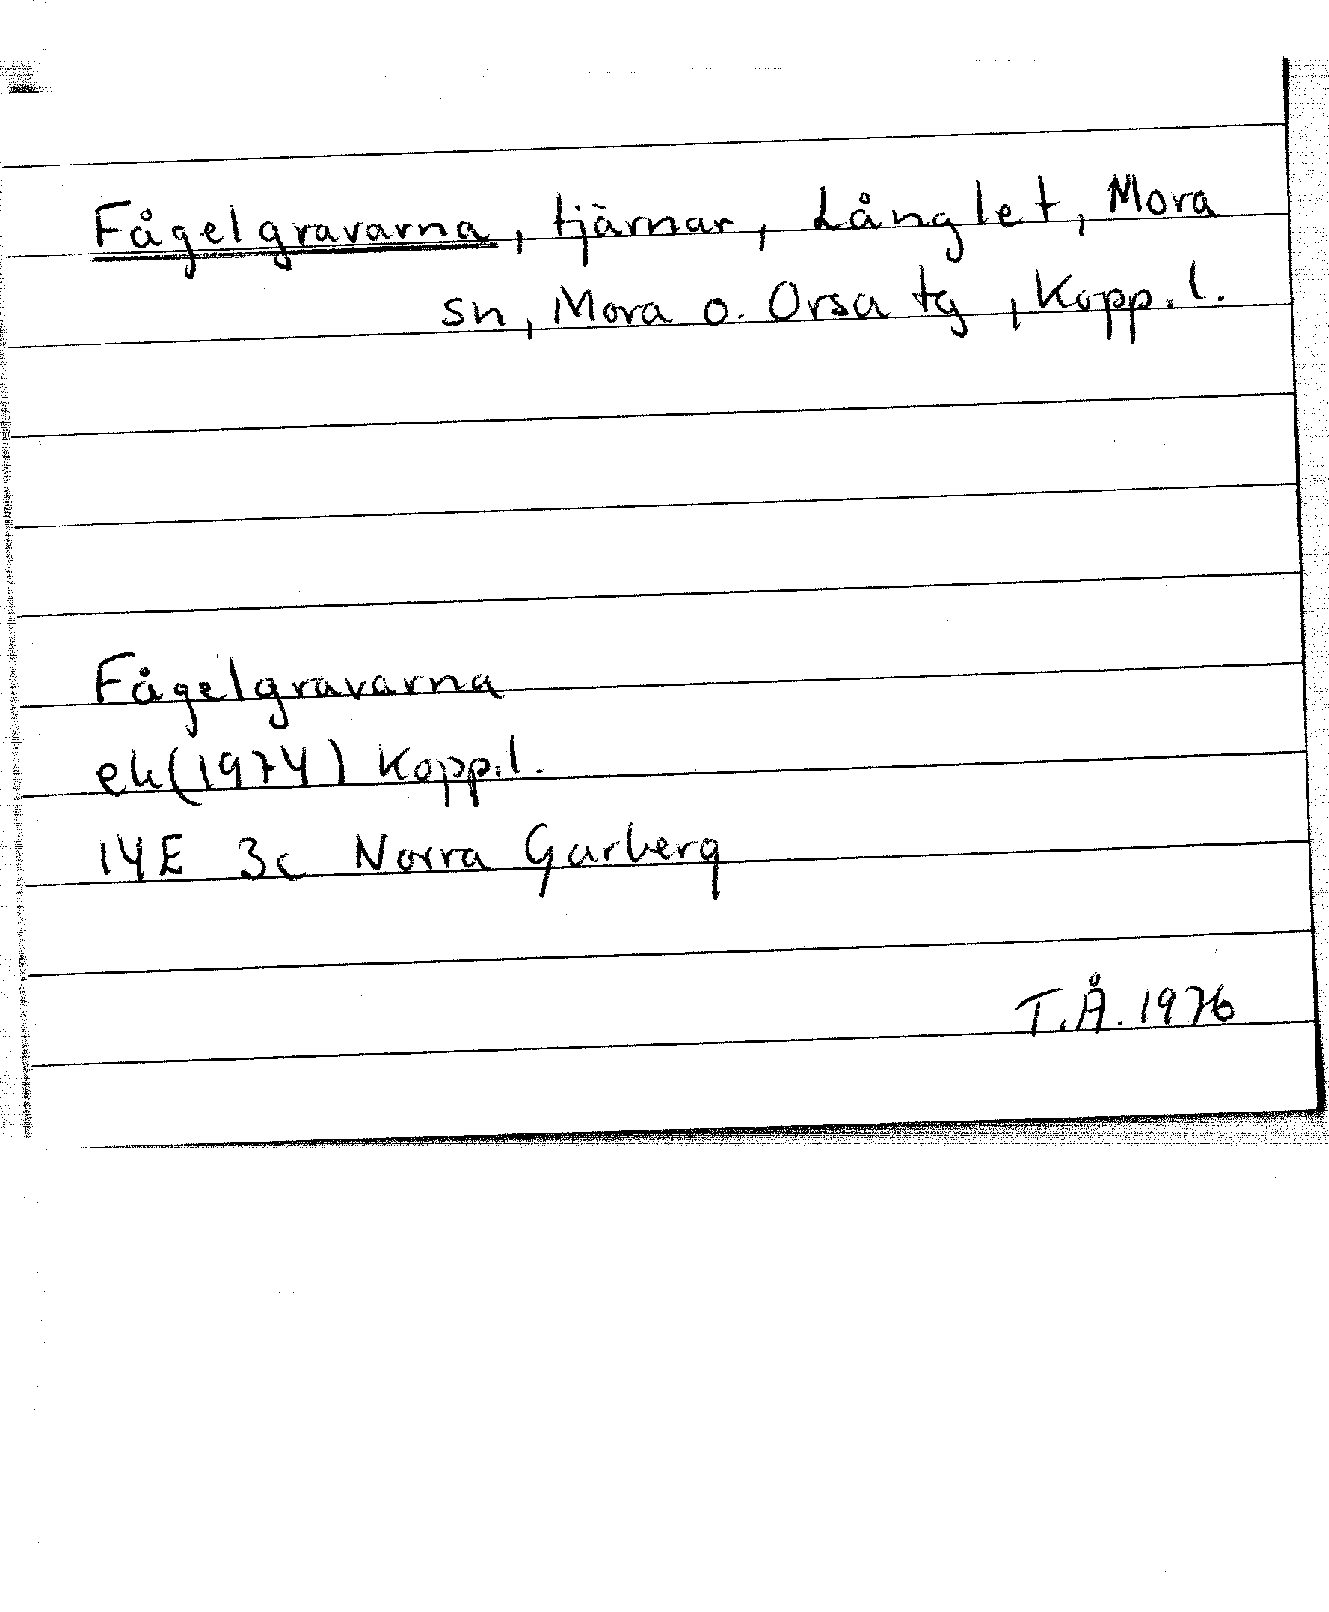 Fågelgravarna, tjärnar, Långlet, Mora
sn, Mora o. Orsa tg, Kopp.l.
Fågelgravarna
ek(1974) Kopp.l.
14E 3c Norra Garberg
T.Å. 1976